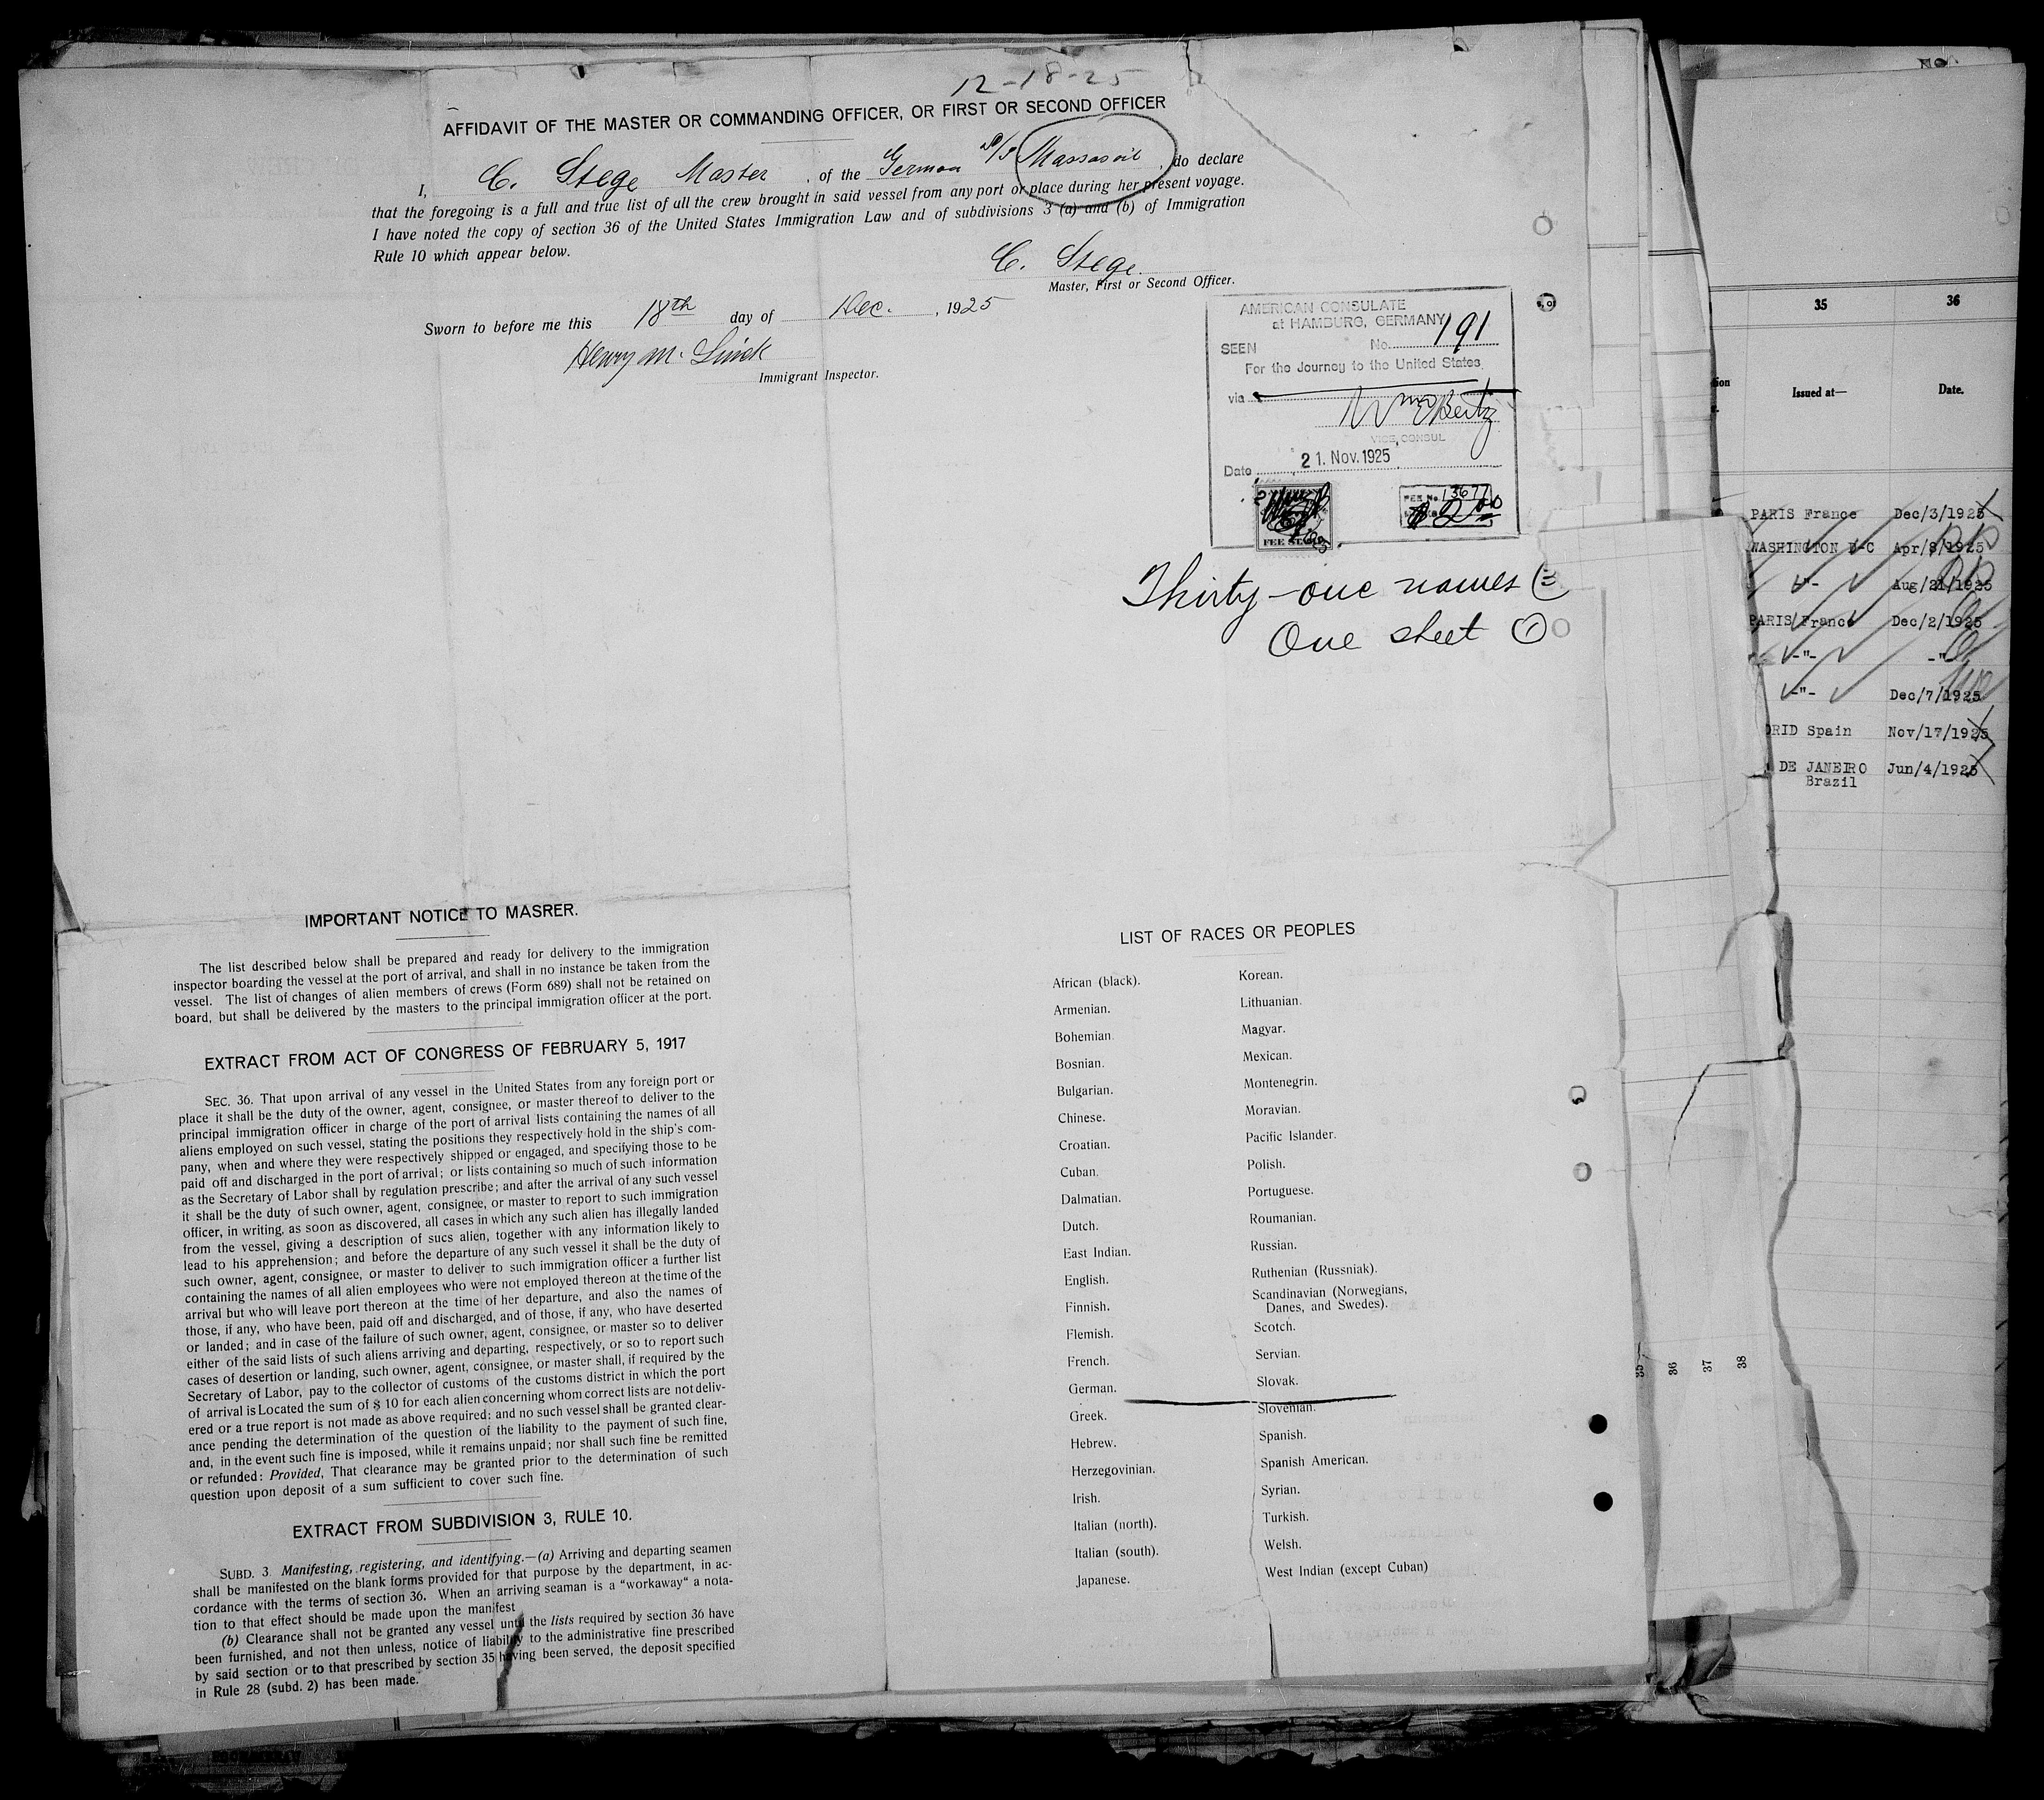 12-18-25
AFFIDAVIT OF THE MASTER OR COMMANDING OFFICER, OR FIRST OR SECOND OFFICER
I, C. Stege Master, of the German S/S Massasoit, do declare
that the foregoing is a full and true list of all the crew brought in said vessel from any port or place during her present voyage.
I have noted the copy of section 36 of the United States Immigration Law and of subdivisions 3 (a) and (b) of Immigration
Rule 10 which appear below.
C. Stege
Master, First or Second Officer.
Sworn to before me this 18th day of Dec., 1925
Henry M.
Immigrant Inspector.
AMERICAN CONSULATE
at HAMBURG, GERMANY
SEEN No. 191
For the Journey to the United States
via
VICE CONSUL
Date 21. Nov. 1925
FEE No. 13677
$2.00
FEE STAMP
Thirty-one names
One sheet (1)
IMPORTANT NOTICE TO MASRER.
The list described below shall be prepared and ready for delivery to the immigration
inspector boarding the vessel at the port of arrival, and shall in no instance be taken from the
vessel. The list of changes of alien members of crews (Form 689) shall not be retained on
board, but shall be delivered by the masters to the principal immigration officer at the port.
EXTRACT FROM ACT OF CONGRESS OF FEBRUARY 5, 1917
SEC. 36. That upon arrival of any vessel in the United States from any foreign port or
place it shall be the duty of the owner, agent, consignee, or master thereof to deliver to the
principal immigration officer in charge of the port of arrival lists containing the names of all
aliens employed on such vessel, stating the positions they respectively hold in the ship's com-
pany, when and where they were respectively shipped or engaged, and specifying those to be
paid off and discharged in the port of arrival; or lists containing so much of such information
as the Secretary of Labor shall by regulation prescribe; and after the arrival of any such vessel
it shall be the duty of such owner, agent, consignee, or master to report to such immigration
officer, in writing, as soon as discovered, all cases in which any such alien has illegally landed
from the vessel, giving a description of sucs alien, together with any information likely to
lead to his apprehension; and before the departure of any such vessel it shall be the duty of
such owner, agent, consignee, or master to deliver to such immigration officer a further list
containing the names of all alien employees who were not employed thereon at the time of the
arrival but who will leave port thereon at the time of her departure, and also the names of
those, if any, who have been, paid off and discharged, and of those, if any, who have deserted
or landed; and in case of the failure of such owner, agent, consignee, or master so to deliver
either of the said lists of such aliens arriving and departing, respectively, or so to report such
cases of desertion or landing, such owner, agent, consignee, or master shall, if required by the
Secretary of Labor, pay to the collector of customs of the customs district in which the port
of arrival is Located the sum of $ 10 for each alien concerning whom correct lists are not deliv-
ered or a true report is not made as above required; and no such vessel shall be granted clear-
ance pending the determination of the question of the liability to the payment of such fine,
and, in the event such fine is imposed, while it remains unpaid; nor shall such fine be remitted
or refunded: Provided, That clearance may be granted prior to the determination of such
question upon deposit of a sum sufficient to cover such fine.
EXTRACT FROM SUBDIVISION 3, RULE 10.
SUBD. 3 Manifesting, registering, and identifying.—(a) Arriving and departing seamen
shall be manifested on the blank forms provided for that purpose by the department, in ac-
cordance with the terms of section 36. When an arriving seaman is a "workaway" a nota-
tion to that effect should be made upon the manifest
(b) Clearance shall not be granted any vessel until the lists required by section 36 have
been furnished, and not then unless, notice of liability to the administrative fine prescribed
by said section or to that prescribed by section 35 having been served, the deposit specified
in Rule 28 (subd. 2) has been made.
LIST OF RACES OR PEOPLES
African (black).
Armenian.
Bohemian
Bosnian.
Bulgarian.
Chinese.
Croatian.
Cuban.
Dalmatian.
Dutch.
East Indian.
English.
Finnish.
Flemish.
French.
German.
Greek.
Hebrew.
Herzegovinian.
Irish.
Italian (north).
Italian (south).
Japanese.
Korean.
Lithuanian.
Magyar.
Mexican.
Montenegrin.
Moravian.
Pacific Islander.
Polish.
Portuguese.
Roumanian.
Russian.
Ruthenian (Russniak).
Scandinavian (Norwegians,
Danes, and Swedes).
Scotch.
Servian.
Slovak.
Slovenian.
Spanish.
Spanish American.
Syrian.
Turkish.
Welsh.
West Indian (except Cuban)
35 36
Issued at— Date.
PARIS France Dec/3/1925
WASHINGTON D-C Apr/8/1925
-"- Aug/21/1925
PARIS/France Dec/2/1925
-"- -"-
-"- Dec/7/1925
DRID Spain Nov/17/1925
DE JANEIRO Jun/4/1925
Brazil
35
36
37
38